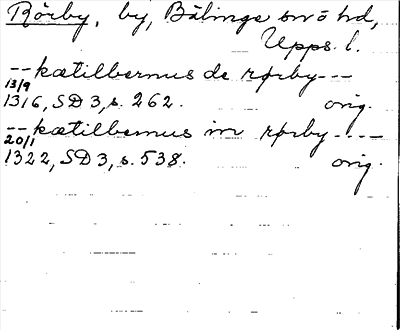 Rörby, by, Bälinge sn o hd,
Upps. l.
--kætilbernus de rørby---
13/9
1316, SD 3, s. 262. orig.
--kætilbernus in rørby----
20/1
1322, SD 3, s. 538. orig.